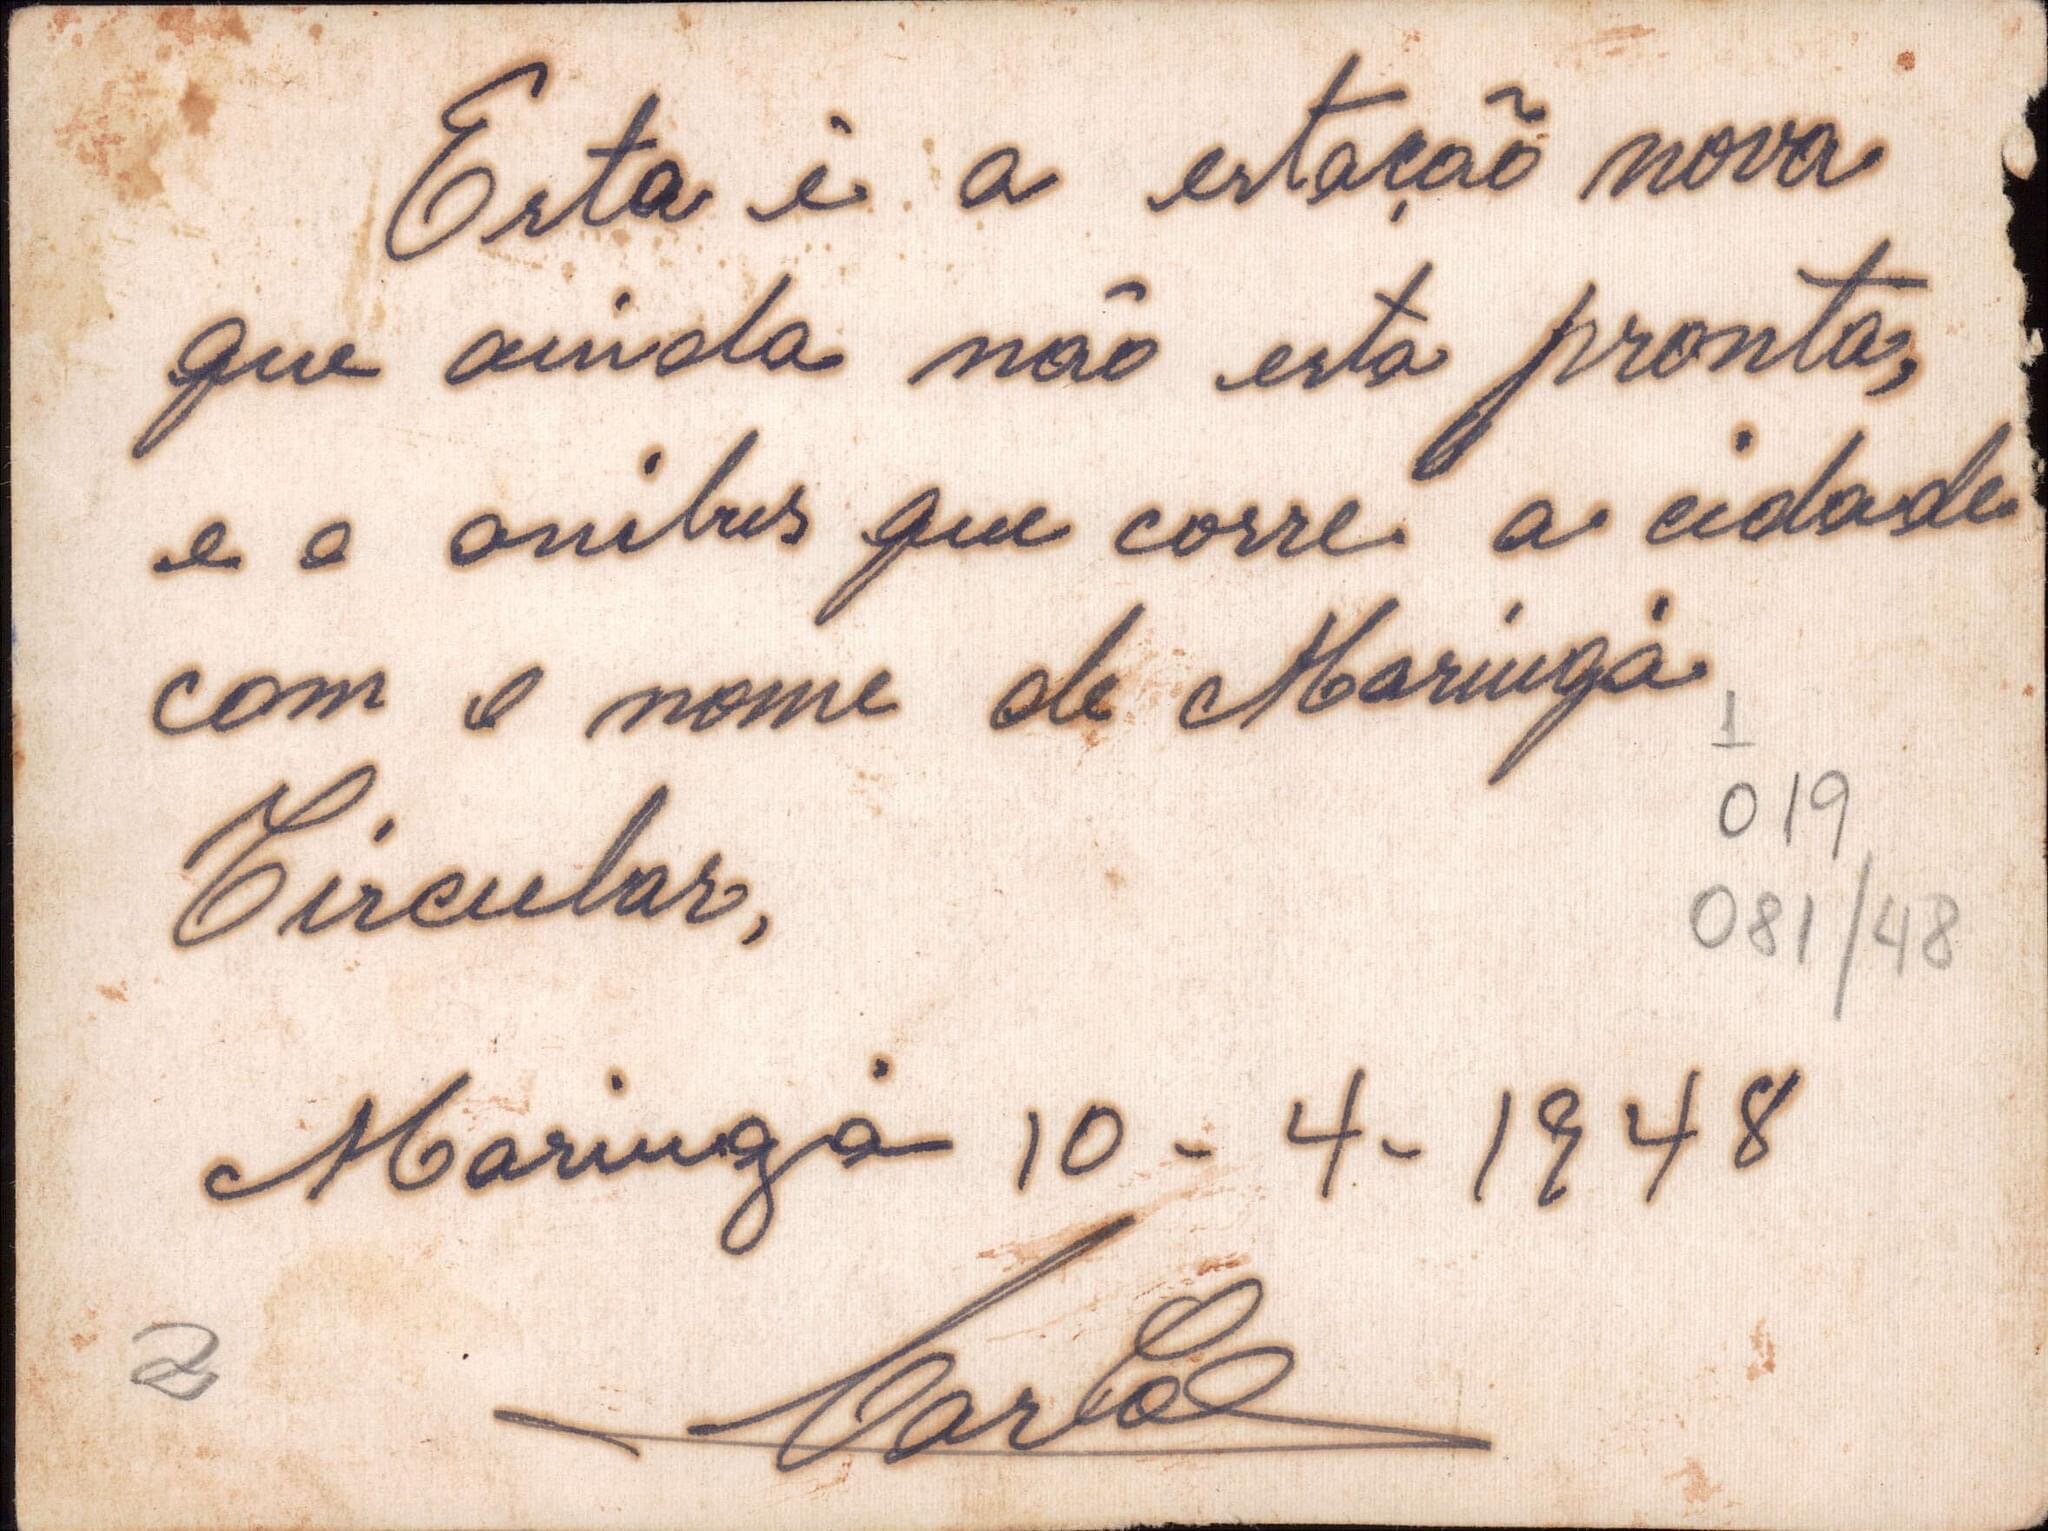 Esta é a estação nova
que ainda não esta pronta,
e o onibus que corre a cidade
com o nome de Maringá
Circular,
1
019
081/48
Maringá 10-4-1948
2